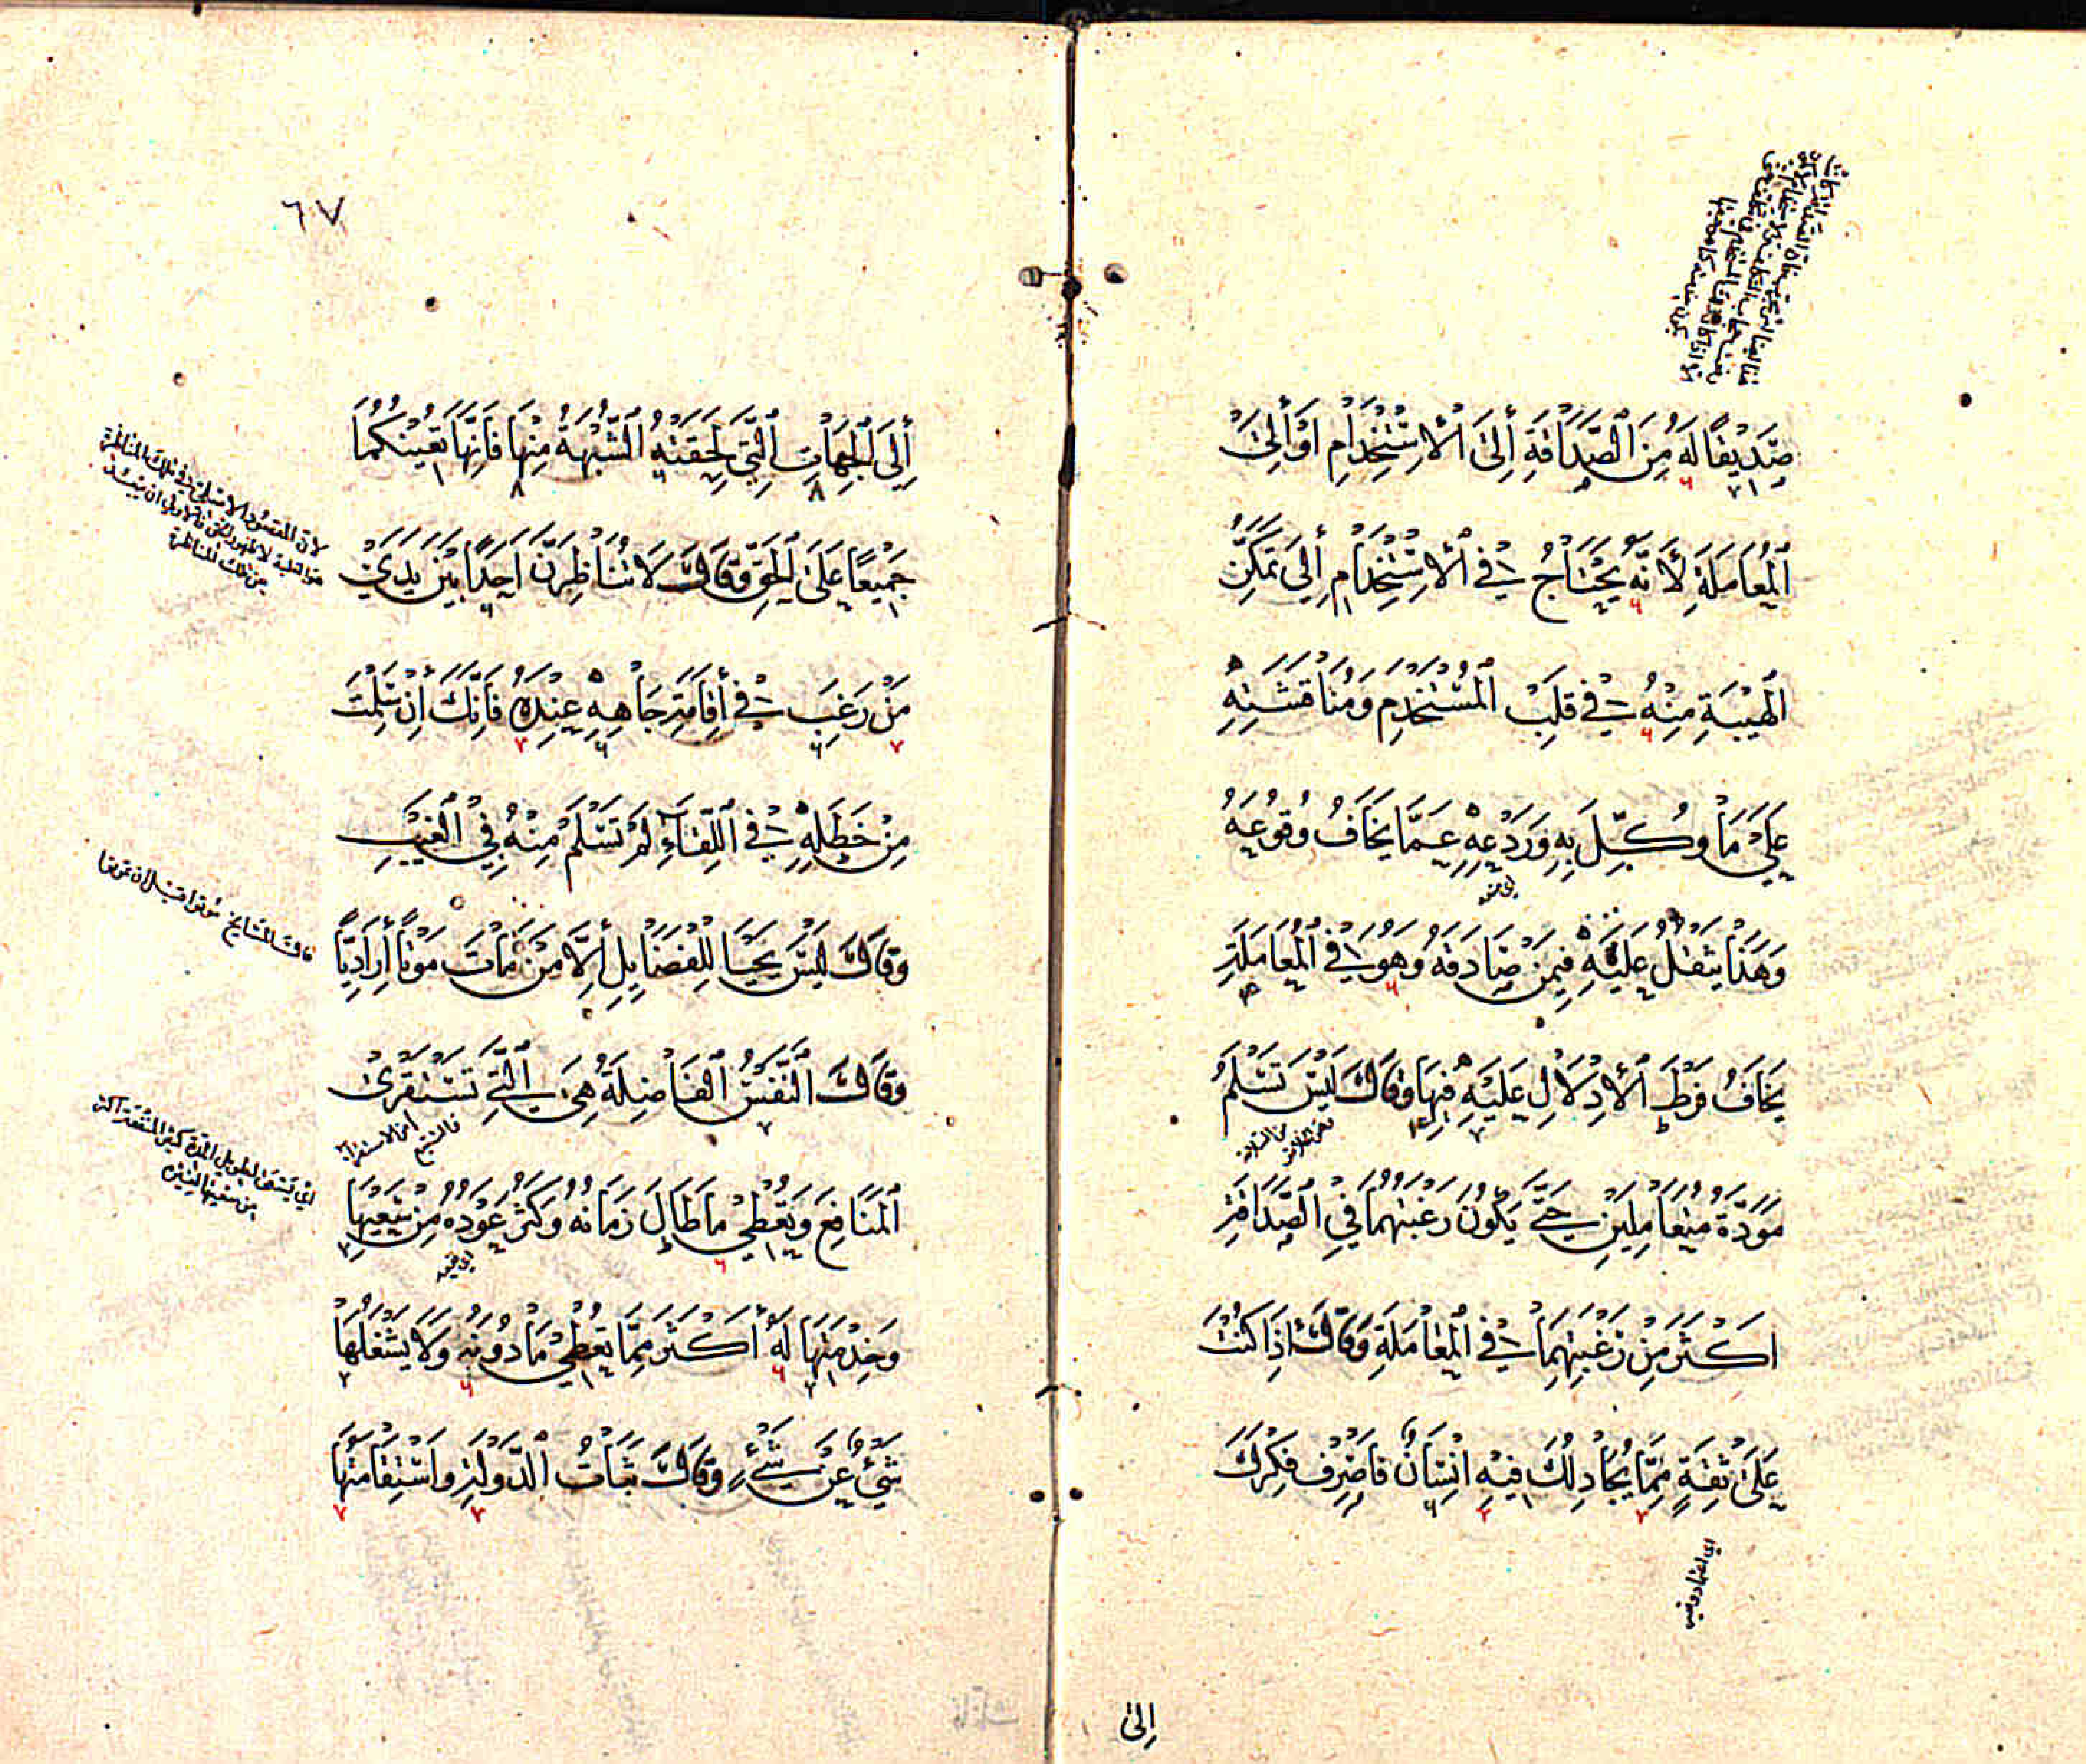 صَدِيقًا لَهُ مِنَ الصَّدَاقَةِ إِلَى الْاِسْتِخْدَامِ أَوْ إِلَى
الْمُعَامَلَةِ لِأَنَّهُ يَحْتَاجُ فِي الْاِسْتِخْدَامِ إِلَى تَمَكُّنِ
الْهَيْبَةِ مِنْهُ فِي قَلْبِ الْمُسْتَخْدَمِ وَمُنَاقَشَتِهِ
عَلَى مَا وُكِّلَ بِهِ وَرَدْعِهِ عَمَّا يَخَافُ وُقُوعَهُ
وَهَذَا يَثْقُلُ عَلَيْهِ فِيمَنْ صَادَقَهُ وَهُوَ فِي الْمُعَامَلَةِ
يَخَافُ فَرْطَ الْاِدْلَالِ عَلَيْهِ فِيهَا وَقَالَ لَيْسَ تَسْلَمُ
مَوَدَّةُ مُتَعَامِلَيْنِ حَتَّى يَكُونَ رَغْبَتُهُمَا فِي الصَّدَاقَةِ
اَكْثَرَ مِنْ رَغْبَتِهِمَا فِي الْمُعَامَلَةِ وَقَالَ اِذَا كُنْتَ
عَلَى ثِقَةٍ مِمَّا يُجَادِلُكَ فِيهِ اِنْسَانٌ فَاصْرِفْ فِكْرَكَ
اِلَى
٦٧
إِلَى الْجِهَاتِ الَّتِي لَحِقَتْهُ الشُّبْهَةُ مِنْهَا فَاِنَّهَا تُعِينُكُمَا
جَمِيعًا عَلَى الْحَقِّ وَقَالَ لَا تُنَاظِرَنَّ اَحَدًا بَيْنَ يَدَيْ
مَنْ رَغِبَ فِي إِقَامَةِ جَاهِهِ عِنْدَهُ فَاِنَّكَ اِنْ سَلِمْتَ
مِنْ خَطَلِهِ فِي اللِّقَآءِ لَمْ تَسْلَمْ مِنْهُ فِي الْغَيْبِ
وَقَالَ لَيْسَ يَحْيَا لِلْفَضَايِلِ إِلَّا مَنْ مَاتَ مَوْتًا إِرَادِيًّا
وَقَالَ النَّفْسُ الْفَاضِلَةُ هِيَ الَّتِي تَسْتَقْرِئُ
الْمَنَافِعَ وَتُعْطِي مَا طَالَ زَمَانُهُ وَكَثُرَ عَوْدُهُ مِنْ سَعْيِهَا
وَخِدْمَتِهَا لَهُ أَكْثَرَ مِمَّا تُعْطِي مَا دُونَهُ وَلَا يَشْغَلُهَا
شَيْءٌ عَنْ شَيْءٍ وَقَالَ ثَبَاتُ الدَّوْلَةِ وَاسْتِقَامَتُهَا
لان المقصود الاصلي في تلك المناظرة
من تلك المناظرة
قالت المشايخ موتوا قبل ان تموتوا